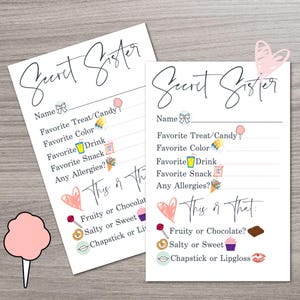 Secret Sister
Name
Favorite Treat/Candy
Favorite Color
Favorite Drink
Favorite Snack
Any Allergies?
This or
Fruity or Chocolate
Salty or Sweet
Chapstick or Lip
Secret Sister
Name
Favorite Treat/Candy
Favorite Color
Favorite Drink
Favorite Snack
Any Allergies?
This or That:
Fruity or Chocolate?
Salty or Sweet
Chapstick or Lipgloss